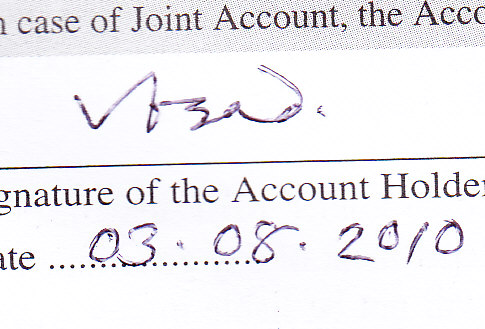 n case of Joint Account, the Acco
gnature of the Account Holder
ate .................... 03.08.2010